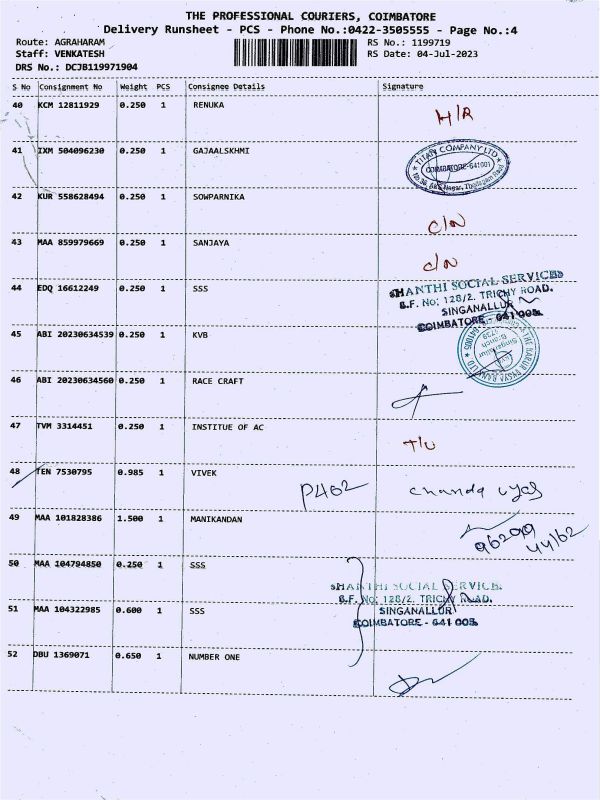 THE PROFESSIONAL COURIERS, COIMBATORE
Delivery Runsheet - PCS - Phone No.:0422-3505555 - Page No.:4
Route: AGRAHARAM RS No.: 1199719
Staff: VENKATESH RS Date: 04-Jul-2023
DRS No.: DCJB119971904
S No Consignment No Weight PCS Consignee Details Signature
40 KCM 12811929 0.250 1 RENUKA H/R
41 IXM 504096230 0.250 1 GAJAALSKHMI
TITAN COMPANY LTD
COIMBATORE-641001
42 KUR 558628494 0.250 1 SOWPARNIKA C/N
43 MAA 859979669 0.250 1 SANJAYA C/N
44 EDQ 16612249 0.250 1 SSS
SHANTHI SOCIAL SERVICES
S.F. No: 128/2. TRICHY ROAD.
SINGANALLUR
COIMBATORE - 641 005.
45 ABI 20230634539 0.250 1 KVB
46 ABI 20230634560 0.250 1 RACE CRAFT
47 TVM 3314451 0.250 1 INSTITUE OF AC T/U
48 TEN 7530795 0.985 1 VIVEK P462
49 MAA 101828386 1.500 1 MANIKANDAN 96299
44162
50 MAA 104794850 0.250 1 SSS
SHANTHI SOCIAL SERVICE
S.F. No: 128/2. TRICHY ROAD.
51 MAA 104322985 0.600 1 SSS SINGANALLUR
COIMBATORE - 641 005.
52 DBU 1369071 0.650 1 NUMBER ONE